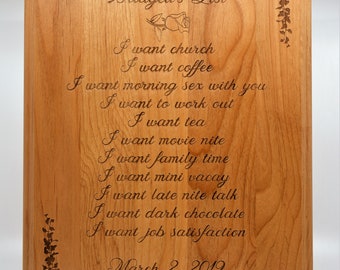 Bridgett's List
I want church
I want coffee
I want morning sex with you
I want to work out
I want tea
I want movie nite
I want family time
I want mini vacay
I want late nite talk
I want dark chocolate
I want job satisfaction
March 2, 2019